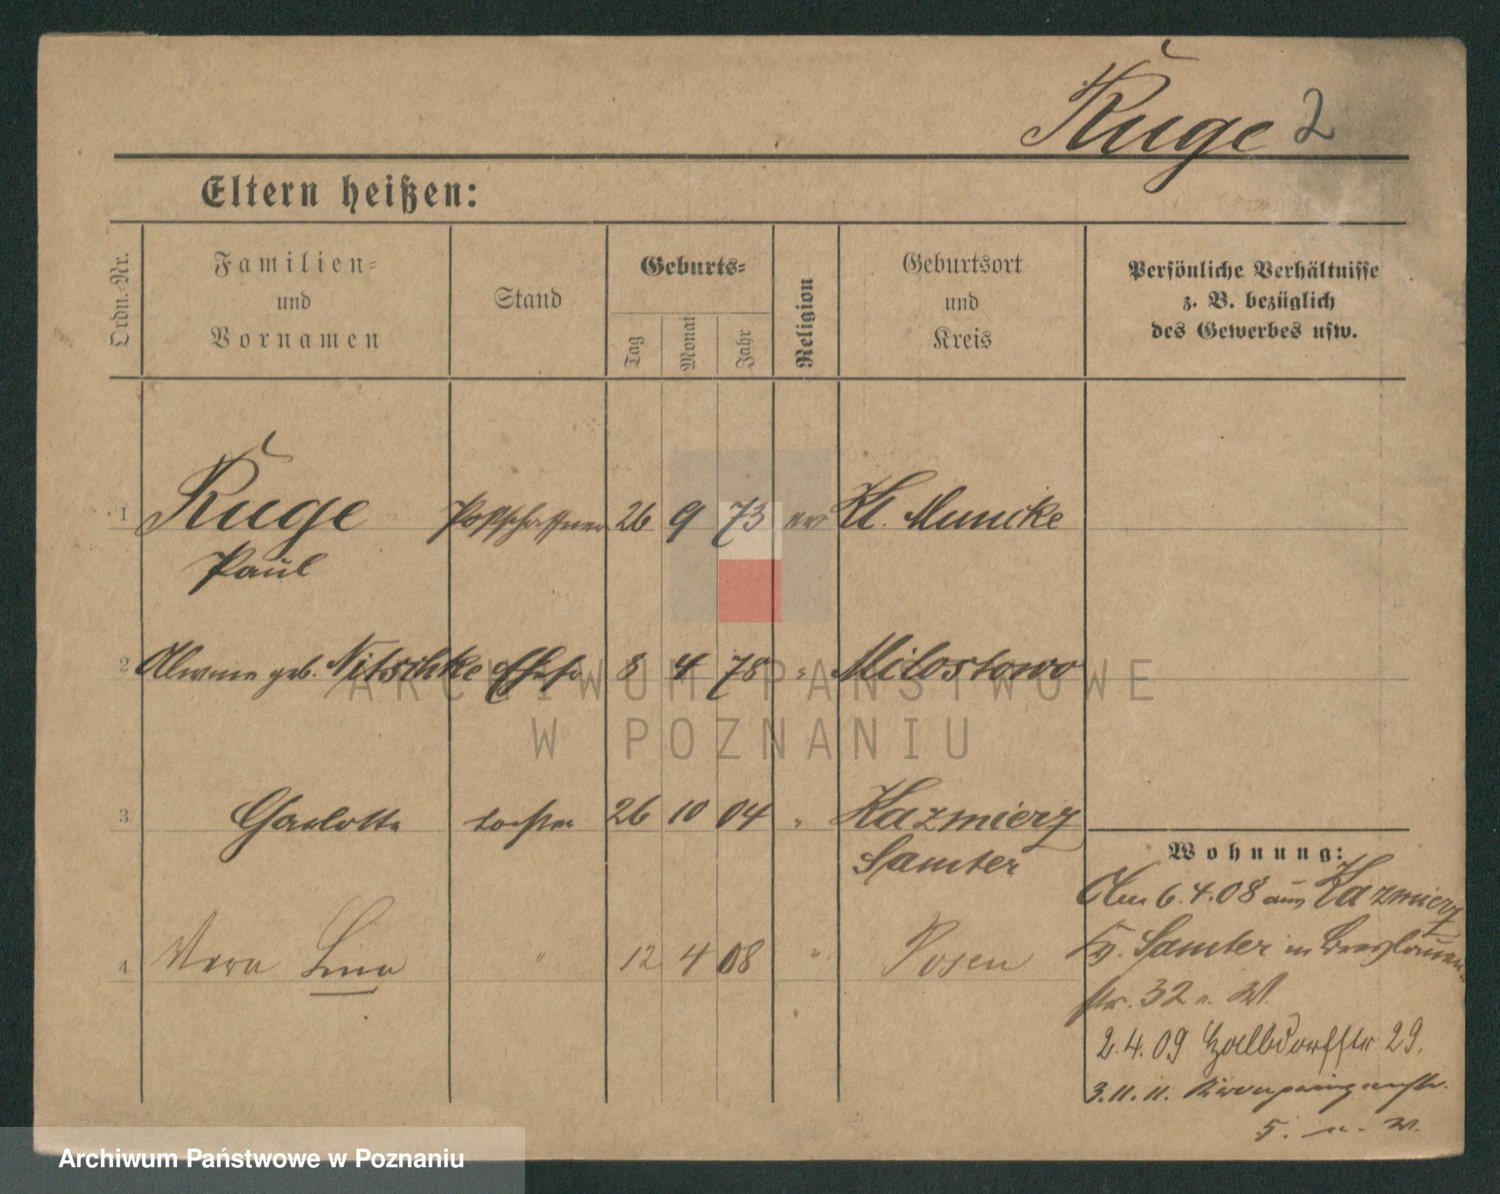 Ruge 2
Eltern heißen:
Ordn.-Nr.
Familien-
und
Vornamen
Stand
Geburts-
Tag
Monat
Jahr
Religion
Geburtsort
und
Kreis
Persönliche Verhältnisse
z. B. bezüglich
des Gewerbes usw.
1 Ruge Postschaffner 26 9 73 ev Kl. Municke
Paul
2 geb. Nitschke Ehefr 8 4 78 " Milostowo
3 Charlotte Tochter 26 10 04 " Kazmierz
Samter
4 Vera Lina " 12 4 08 " Posen
Wohnung:
6.4.08 aus Kazmierz
Kr. Samter in Breslauer-
str. 32 n. W.
2.4.09 Halbdorfstr. 29.
3.11.11. Kronprinzenstr.
5. n. W.
ARCHIWUM PAŃSTWOWE
W POZNANIU
Archiwum Państwowe w Poznaniu